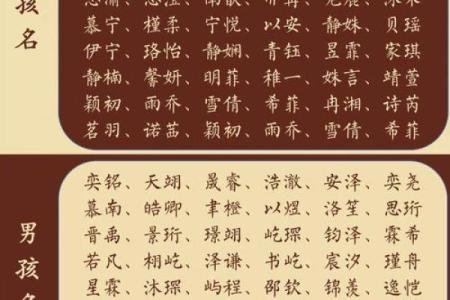 孩名
慕宁、槿柔、宁悦、以安、静姝、贝瑶
伊宁、珞怡、静娴、青钰、昱霏、家琪
静楠、馨妍、明菲、稚一、姝言、靖萱
颖初、雨乔、雪倩、希菲、冉湘、诗芮
茗羽、诺茜、颖初、雨乔、雪倩、希菲
男孩名
奕铭、天翊、晟睿、浩澈、安泽、奕尧
慕南、皓卿、聿橙、以煜、洛笙、思珩
晋禹、景珩、璟翊、屹琛、钧泽、霖希
若凡、栩屹、泽谦、书屹、宸汐、瑾舟
星霖、沐琛、屿程、邵钦、锦羡、逸恺